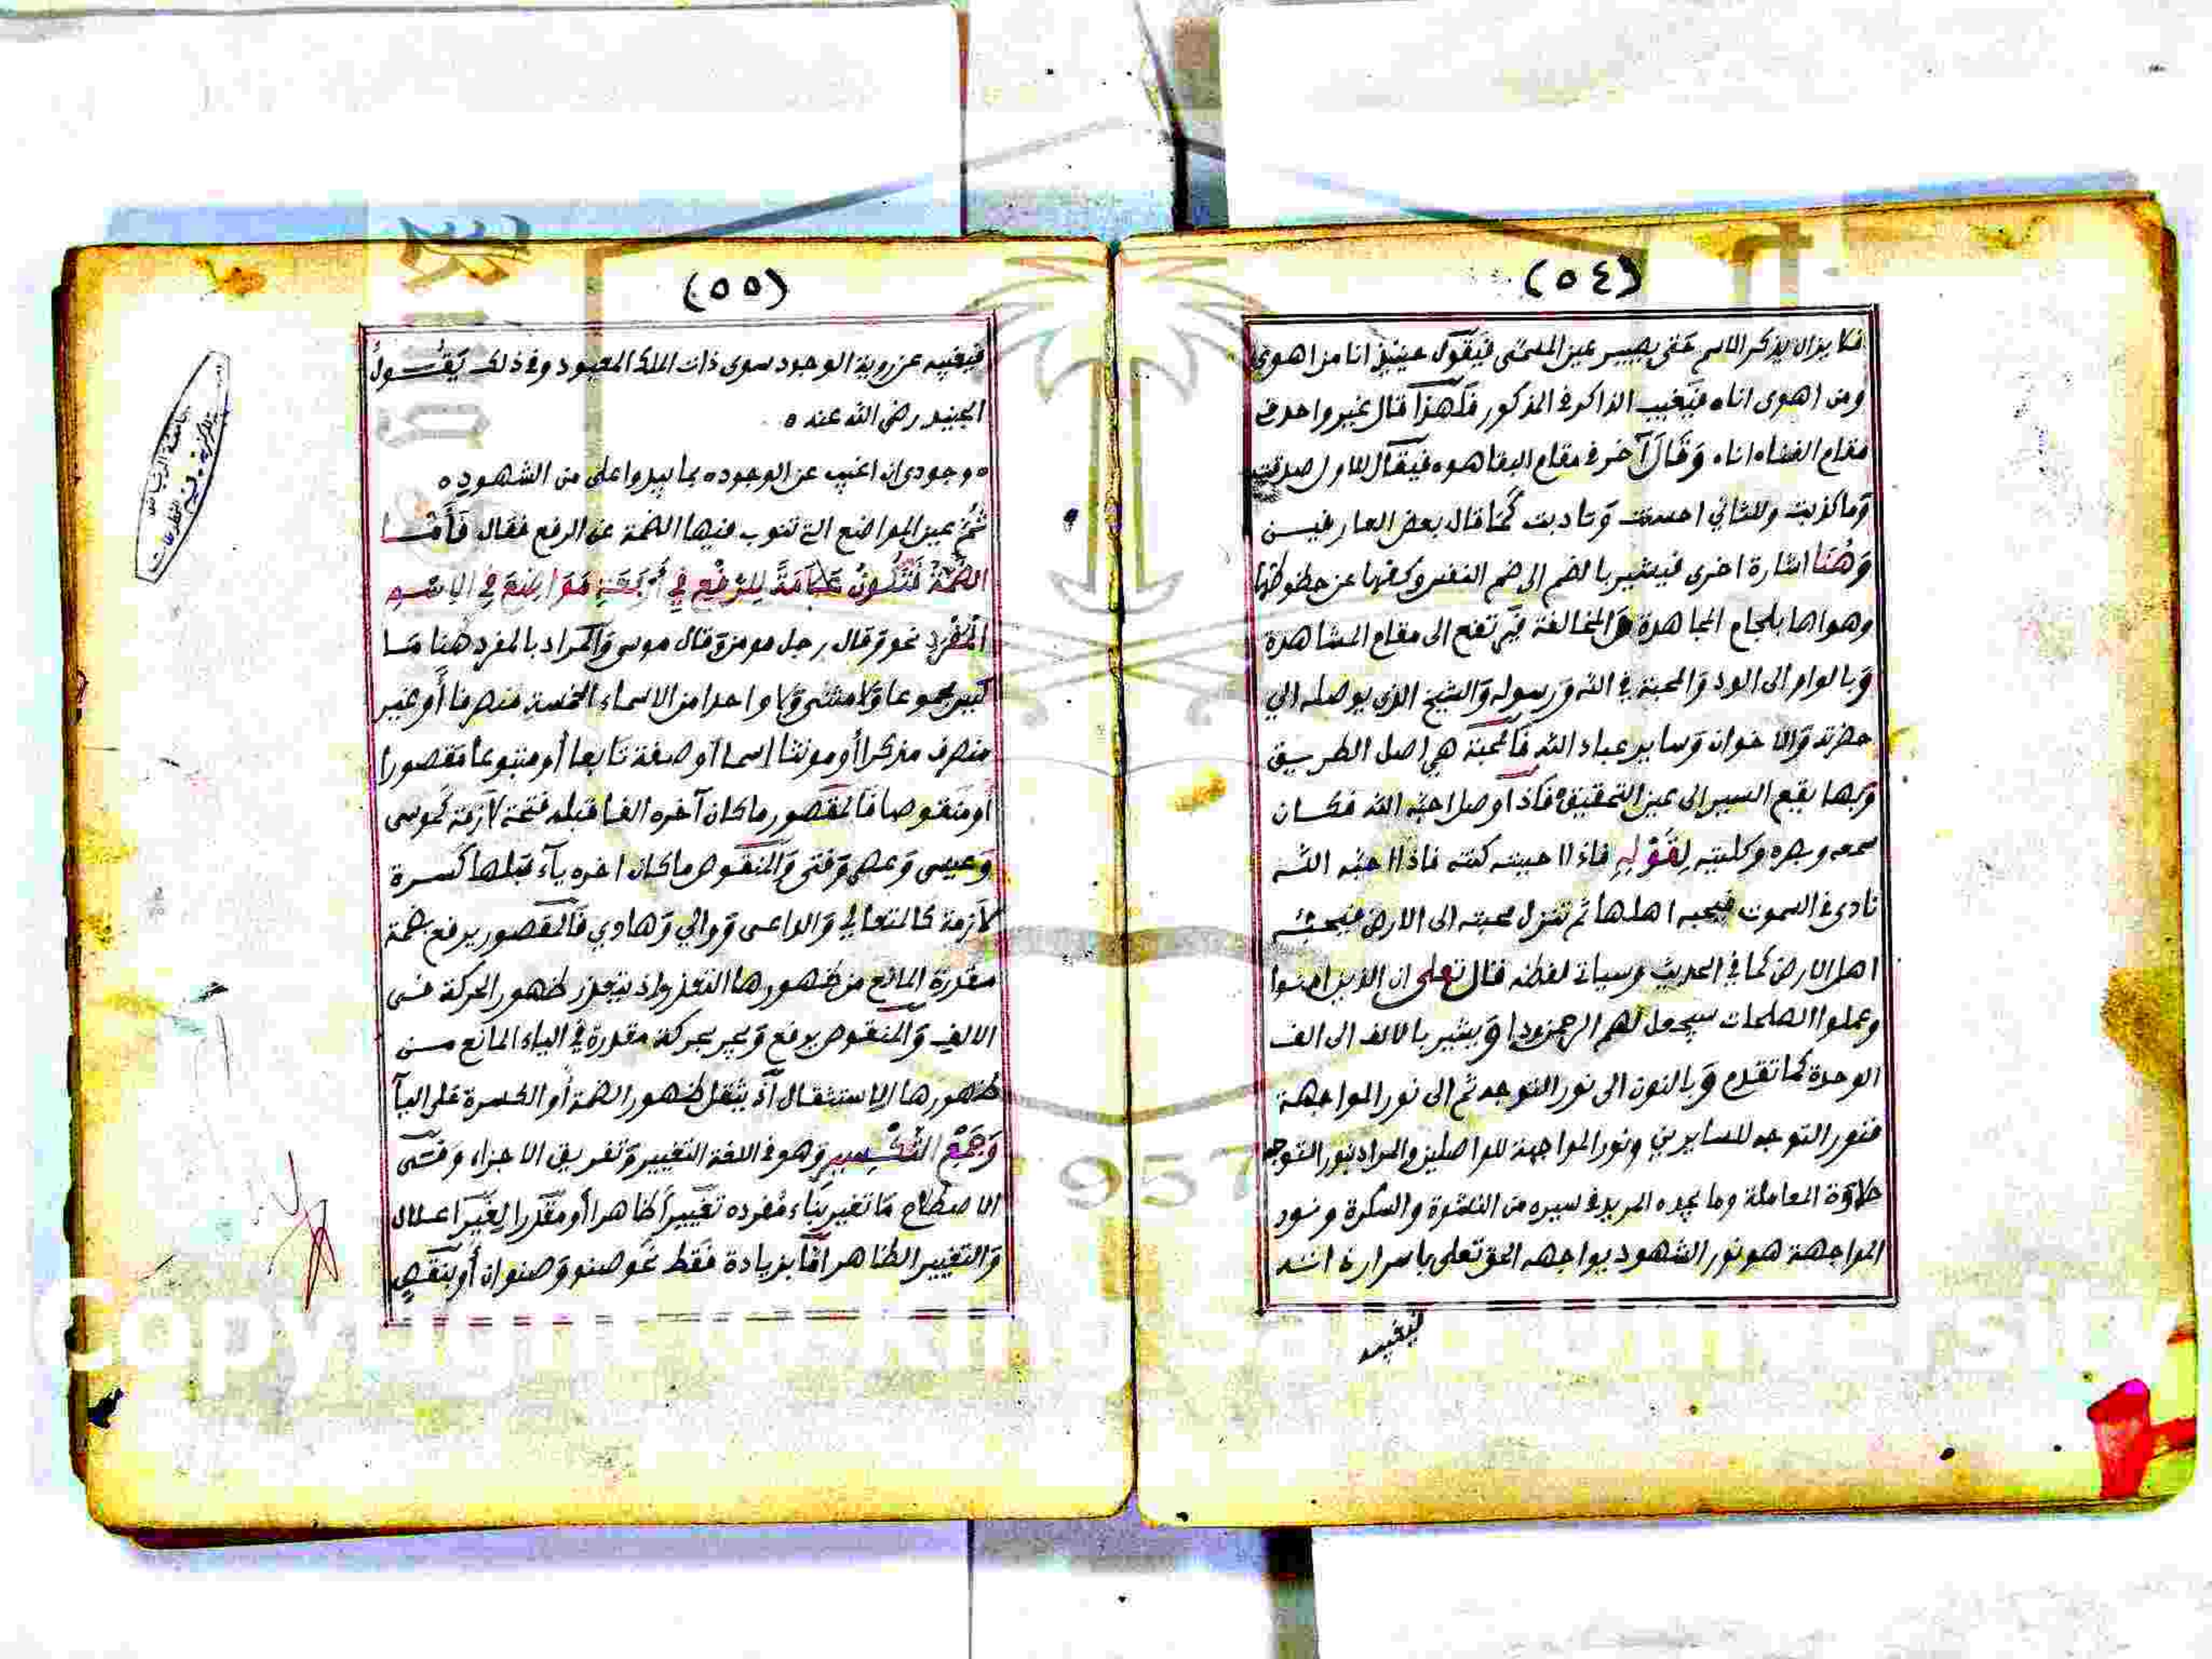 (٥٤)
فلا يزال يذكر الاسم حتى يصير عين المسمى فيقول حينئذ انا من اهوى
ومن اهوى اناه فيغيب الذاكر في المذكور فلهذا قال غير واحد في
مقام الفناه اناه وقال آخر في مقام البقا هوه فيقال للاول صدقت
وما كذبت وللثاني احسنت وتادبت كما قال بعض العارفين
وهنا اشارة اخرى فيشير بالضم الى ضم النفس وكفها عن حظوظها
وهواها بلجام المجاهدة والمخالفة فترتفع الى مقام المشاهدة
وبالواو الى الود والمحبة في الله ورسوله والشيخ الذي يوصله الي
حضرته والاخوان وساير عباد الله فالمحبة هي اصل الطريق
وبها يقع السير الى عين التحقيق فاذا وصل احبه الله فكان
سمعه وبصره وكليته لقوله فاذا احببته كنته فاذا احبه الله
نادى في السموت فيحبه اهلها ثم تنزل محبته الى الارض فيحبه
اهل الارض كما في الحديث وسياتي لفظه قال تعلى ان الذين امنوا
وعملوا الصلحات سيجعل لهم الرحمن ودا ويشير بالالف الى الف
الوحدة كما تقدم وبالنون الى نور التوجه ثم الى نور المواجهة
فنور التوجه للسايرين ونور المواجهة للواصلين والمراد بنور التوجه
حلاوة المعاملة وما يجده المريد في سيره من النشوة والسكرة ونور
المواجهة هو نور الشهود يواجهه الحق تعلى باسرار ذاته
فيغيبه
(٥٥)
فيغيبه عن روية الوجود سوى ذات الملك المعبود وفي ذلك يقول
الجنيد رضي الله عنه ه
ه وجودي ان اغيب عن الوجوده بما يبدوا علي من الشهوده
ثم عين المواضع التي تنوب فيها الضمة عن الرفع فقال فأما
الضمة فتكون علامة للرفع في أربعة مواضع في الاسم
المفرد نحو وقال رجل مومن وقال موسى والمراد بالمفرد هنا ما
ليس مجموعا ولا مثنى ولا واحدا من الاسماء الخمسة منصرفا أو غير
منصرف مذكرا أو مونثا اسما أو صفة تابعا أو متبوعا مقصورا
أو منقوصا فالمقصور ما كان آخره الفا قبله فتحة لازمة كموسى
وعيسى وعصى وفتى والمنقوص ما كان اخره يآء قبلها كسرة
لازمة كالمتعالي والداعى ووالي وهادي فالمقصور يرفع بضمة
مقدرة المانع من ظهورها التعذر اذ يتعذر ظهور الحركة في
الالف والمنقوص يرفع ويجر بحركة مقدرة في الياء المانع من
ظهورها الاستثقال اذ يثقل ظهور الضمة أو الكسرة على اليآ
وجمع التكسير وهو في اللغة التغيير وتفريق الاجزاء وفى
الاصطلاح ما تغير بناء مفرده تغييرا ظاهرا أو مقدرا لغير اعلال
والتغيير الظاهر اما بزيادة فقط نحو صنو وصنوان أو بنقص
جامعة الرياض
Copyright © King Saud University
1957